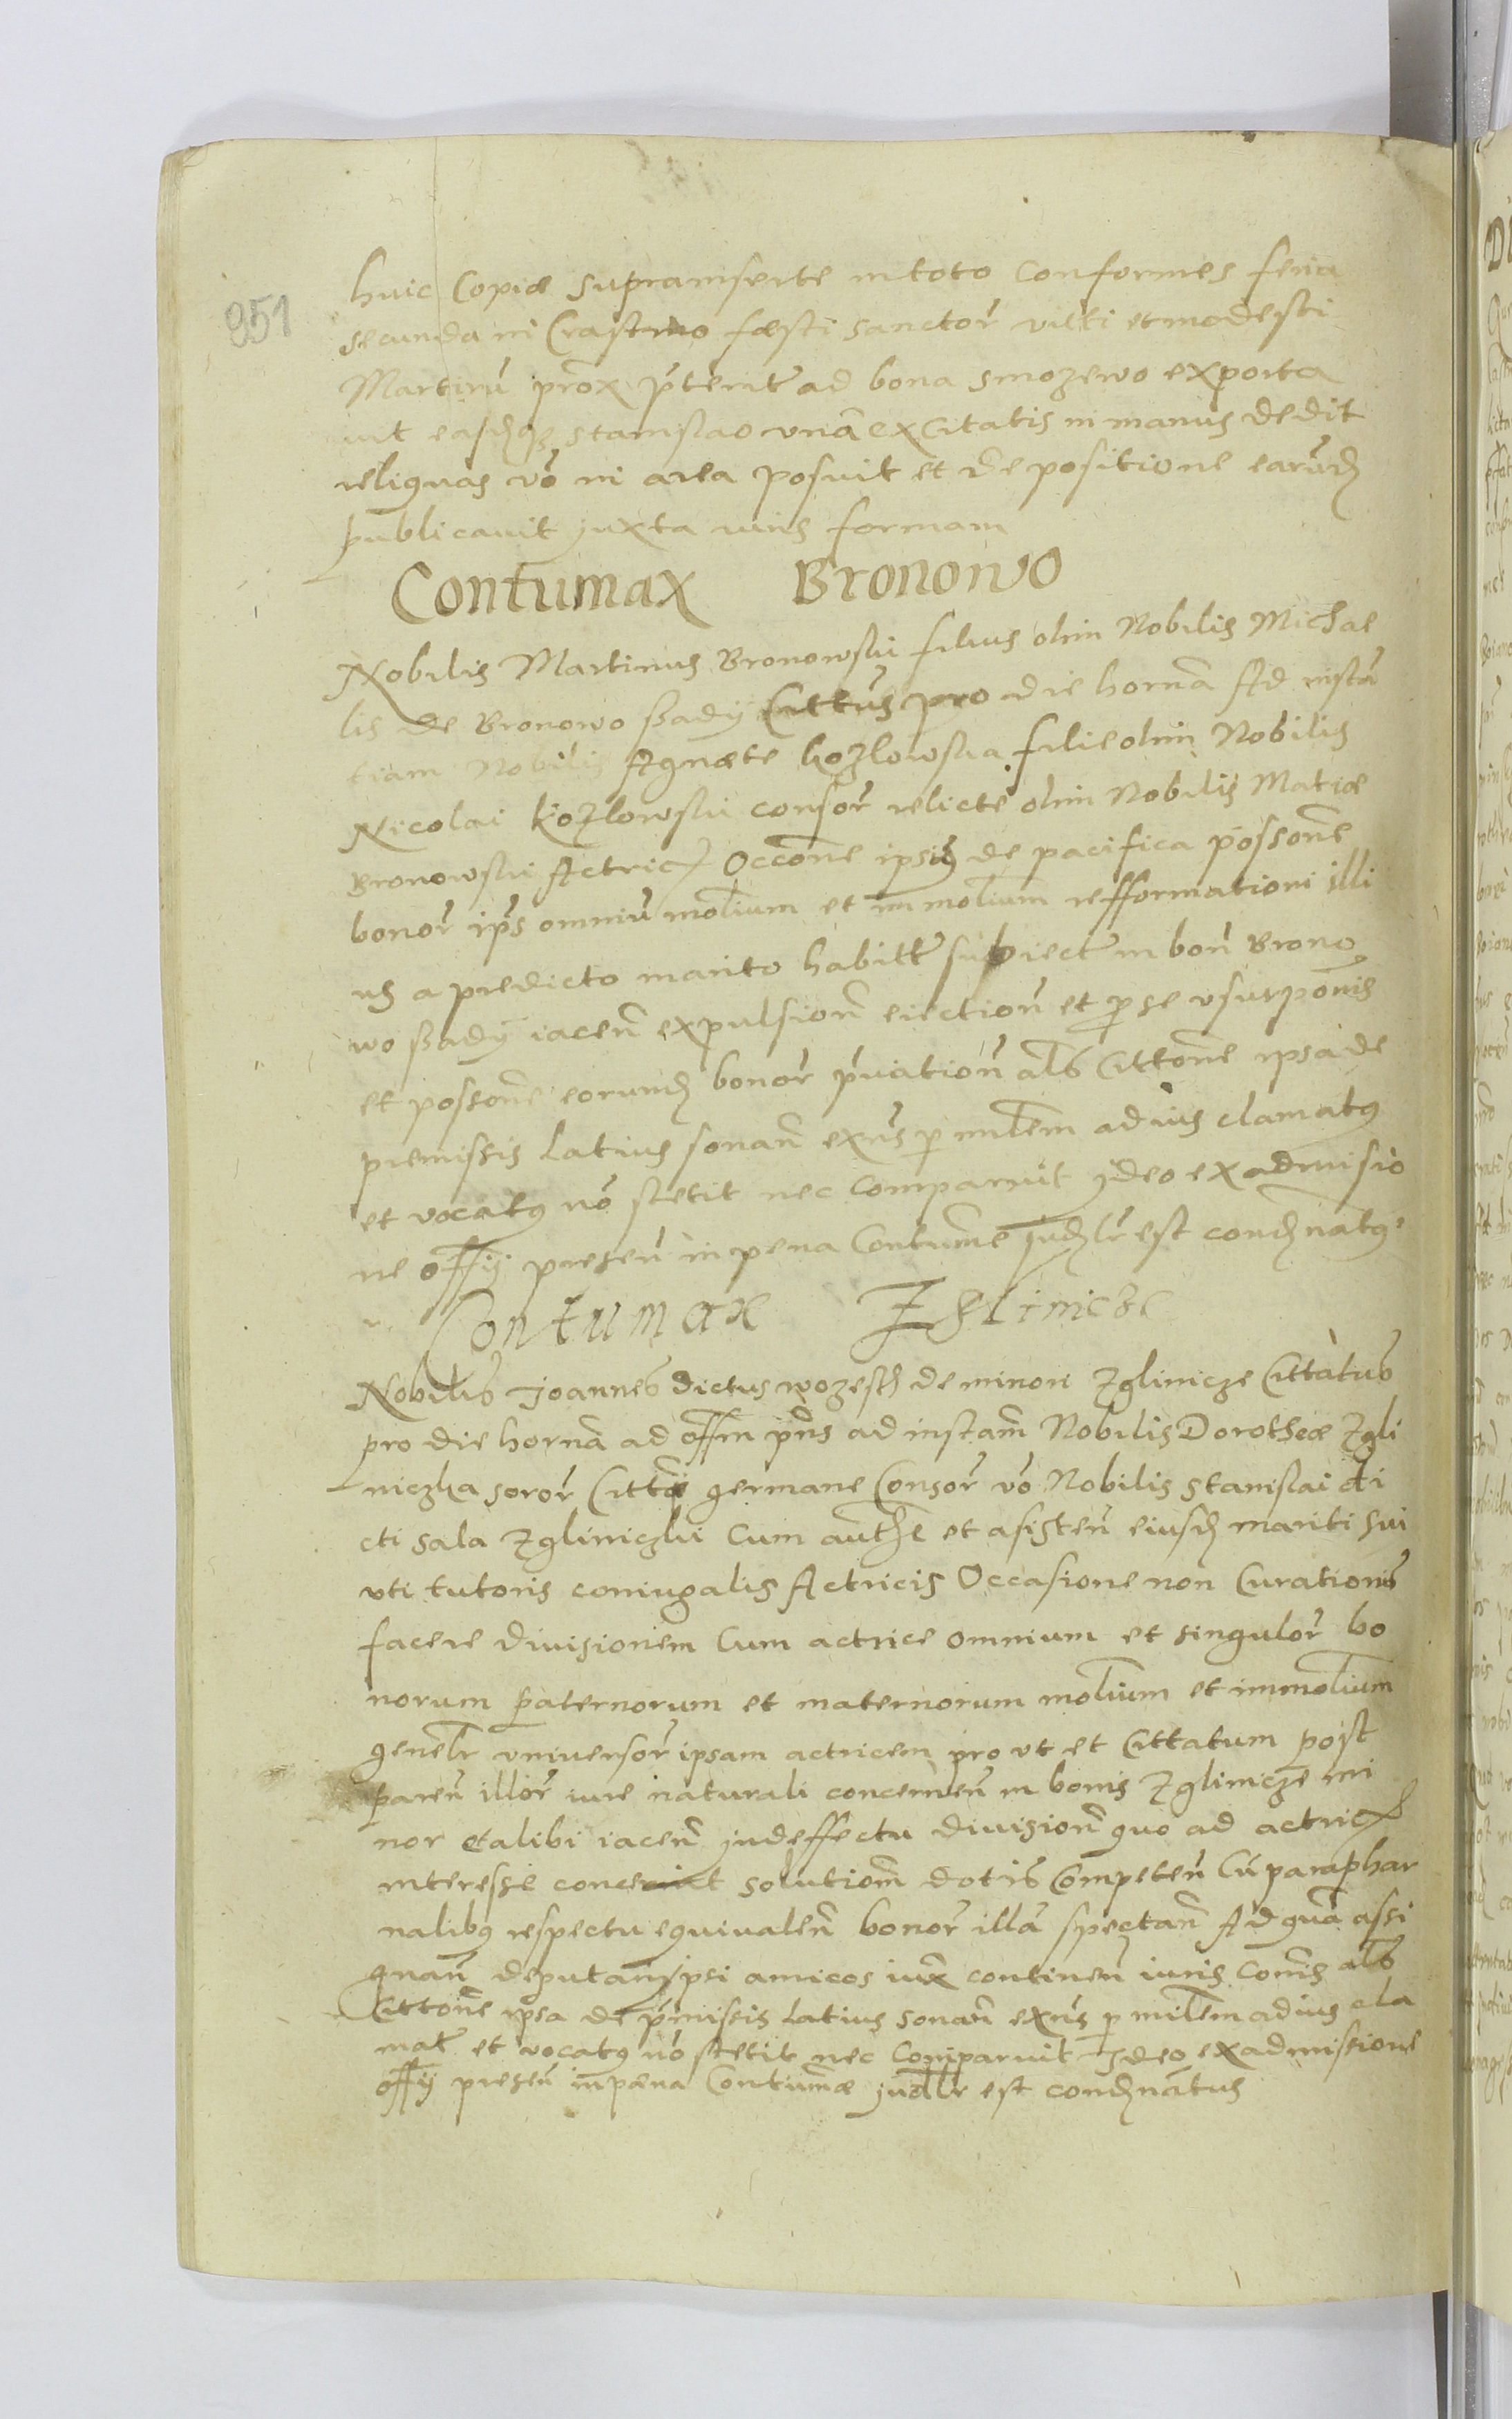 951
huic Copiæ suprainserte in toto Conformes feria
secunda in Crastino festi sanctor̃ viti et modesti
Martirũ prox p̃terit̃ ad bona smozewo exporta
uit easdq̃ stanislao vnã ex Citatis in manus dedit
reliquas võ in area posuit et de positione earũd
publicauit juxta iuris formam
Contumax Bronowo
Nobilis Martinus Bronowski filius olim Nobilis Michae
lis de Bronowo ßadÿ Cittũs pro die hornã Ad instã
tiam Nobilis Agnæte kozlowska filie olim Nobilis
Nicolai kozlowski consor̃ relicte olim Nobilis Matiæ
Bronowski Actric Occõne ipsiũ de pacifica possõne
bonor̃ ip̃s omniũ molium et immolium refformationi illi
us a predicto marito habitt̃ subiect̃ in boñ Brono
wo ßadÿ iaceñ expulsioñ eiectioñ et p se vsurpõnis
et possõne eorumd bonor̃ p̃uatioñ als Cittõne ipsa de
premissis latius sonañ exñs p mrlem ad ius clamatq
et vocatq nõ stetit nec comparuit jdeo ex admisio
ne offÿ preseñ in pena Contumē judlr est condnatq
Contumax Zglinicze
Nobilis Joannes dictus wozesch de minori Zglinicze Cittatus
pro die hornã ad offm pñs ad instam̃ Nobilis Dorotheæ Zgli
niczka soror̃ Cittĩ germane Consor̃ võ Nobilis stanislai di
cti sala Zgliniczki Cum authe et asisteñ eiusd mariti sui
vti tutoris coniugalis Actricis Occasione non Curationis
facere diuisionem Cum actrice omnium et singulor̃ bo
norum paternorum et maternorum molium et immolium
genelr vniuersor̃ ipsam actricem pro vt et Cittatum post
pareñ illor̃ iure naturali concerneñ in bonis Zglinicze mi
nor et alibi iaceñ in deffectu diuisioñ quo ad actric
interesse concernit solutiom̃ dotis Competeñ Cũ paraphar
nalibq respectu equiualeñ bonor̃ illã spectañ Ad quã assi
gnañ deputañ ipsi amicos iux contineñ iuris Comis als
Cittõne ipsa de p̃missis latius sonañ exñs p mlem ad ius cla
mat̃ et vocatq nõ stetit nec Comparuit Ideo ex admissione
offÿ preseñ in pæna Contumæ judlr est condnãtus